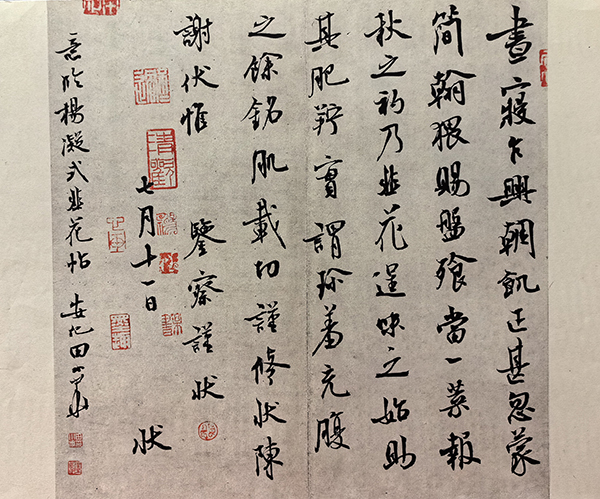 晝寢乍興輖飢正甚忽蒙
簡翰猥賜盤飧當一葉報
秋之初乃韭花逞味之始助
其肥羜實謂珍羞充腹
之餘銘肌載切謹修狀陳
謝伏惟 鑒察謹狀
七月十一日 狀
意臨楊凝式韭花帖 安化田